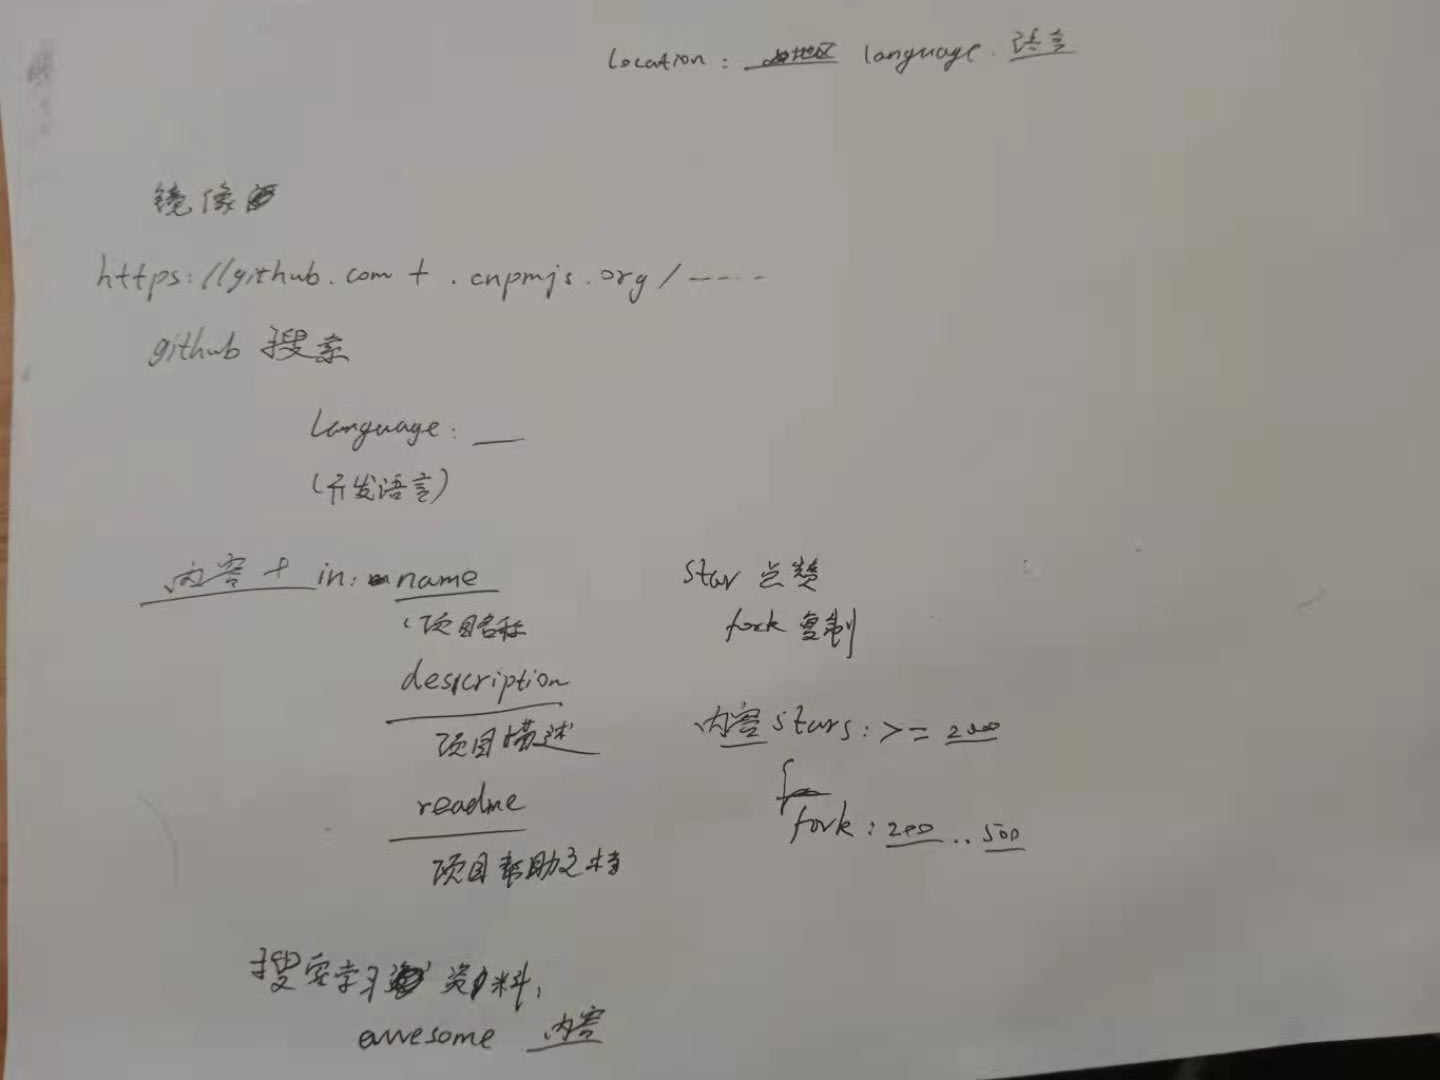 location: 地区 language. 语言
镜像
https://github.com + .cnpmjs.org/-----
github 搜索
language: __
(开发语言)
内容 + in: name
(项目名称
description
项目描述
readme
项目帮助文档
star 点赞
fork 复制
内容 stars: >= 2000
fork: 200 .. 500
搜索学习资料,
awesome 内容